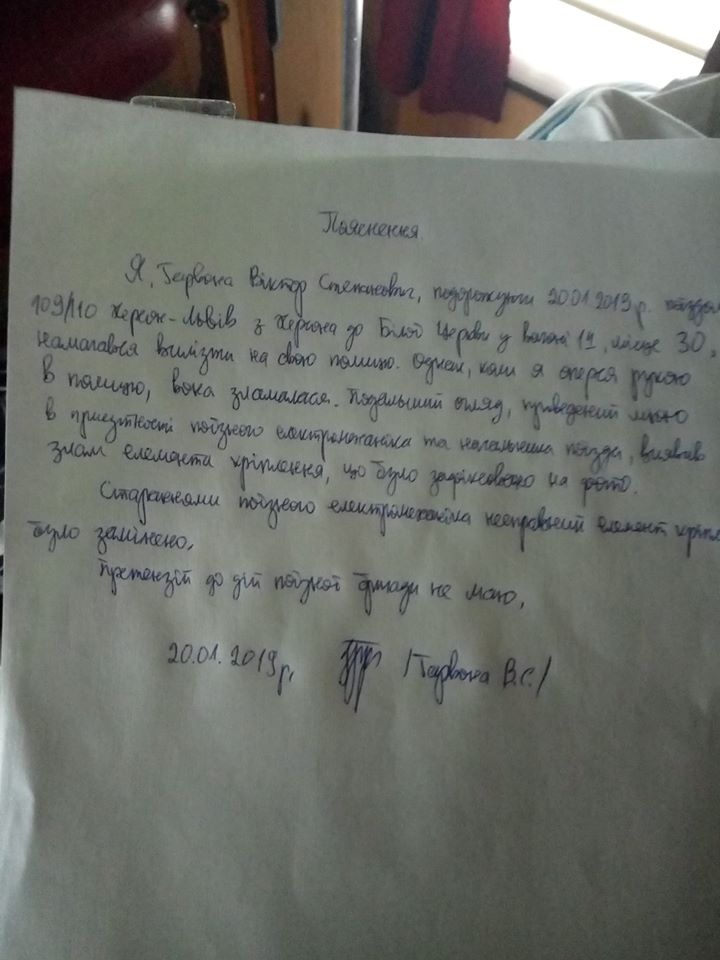 Пояснення
Я, Гарвона Віктор Степанович, подорожуючи 20.01.2019 р. поїздом
109/110 Херсон-Львів з Херсона до Білої Церкви у вагоні 19, місце 30,
намагався вилізти на свою полицю. Однак, коли я оперся рукою
в полицю, вона зламалася. Подальший огляд, проведений мною
в присутності поїзного електромеханіка та начальника поїзда, виявив
злам елемента кріплення, що було зафіксовано на фото.
Стараннями поїзного електромеханіка несправний елемент кріпл
було замінено.
Претензій до дій поїзної бригади не маю.
20.01.2019 р. /Гарвона В.С./